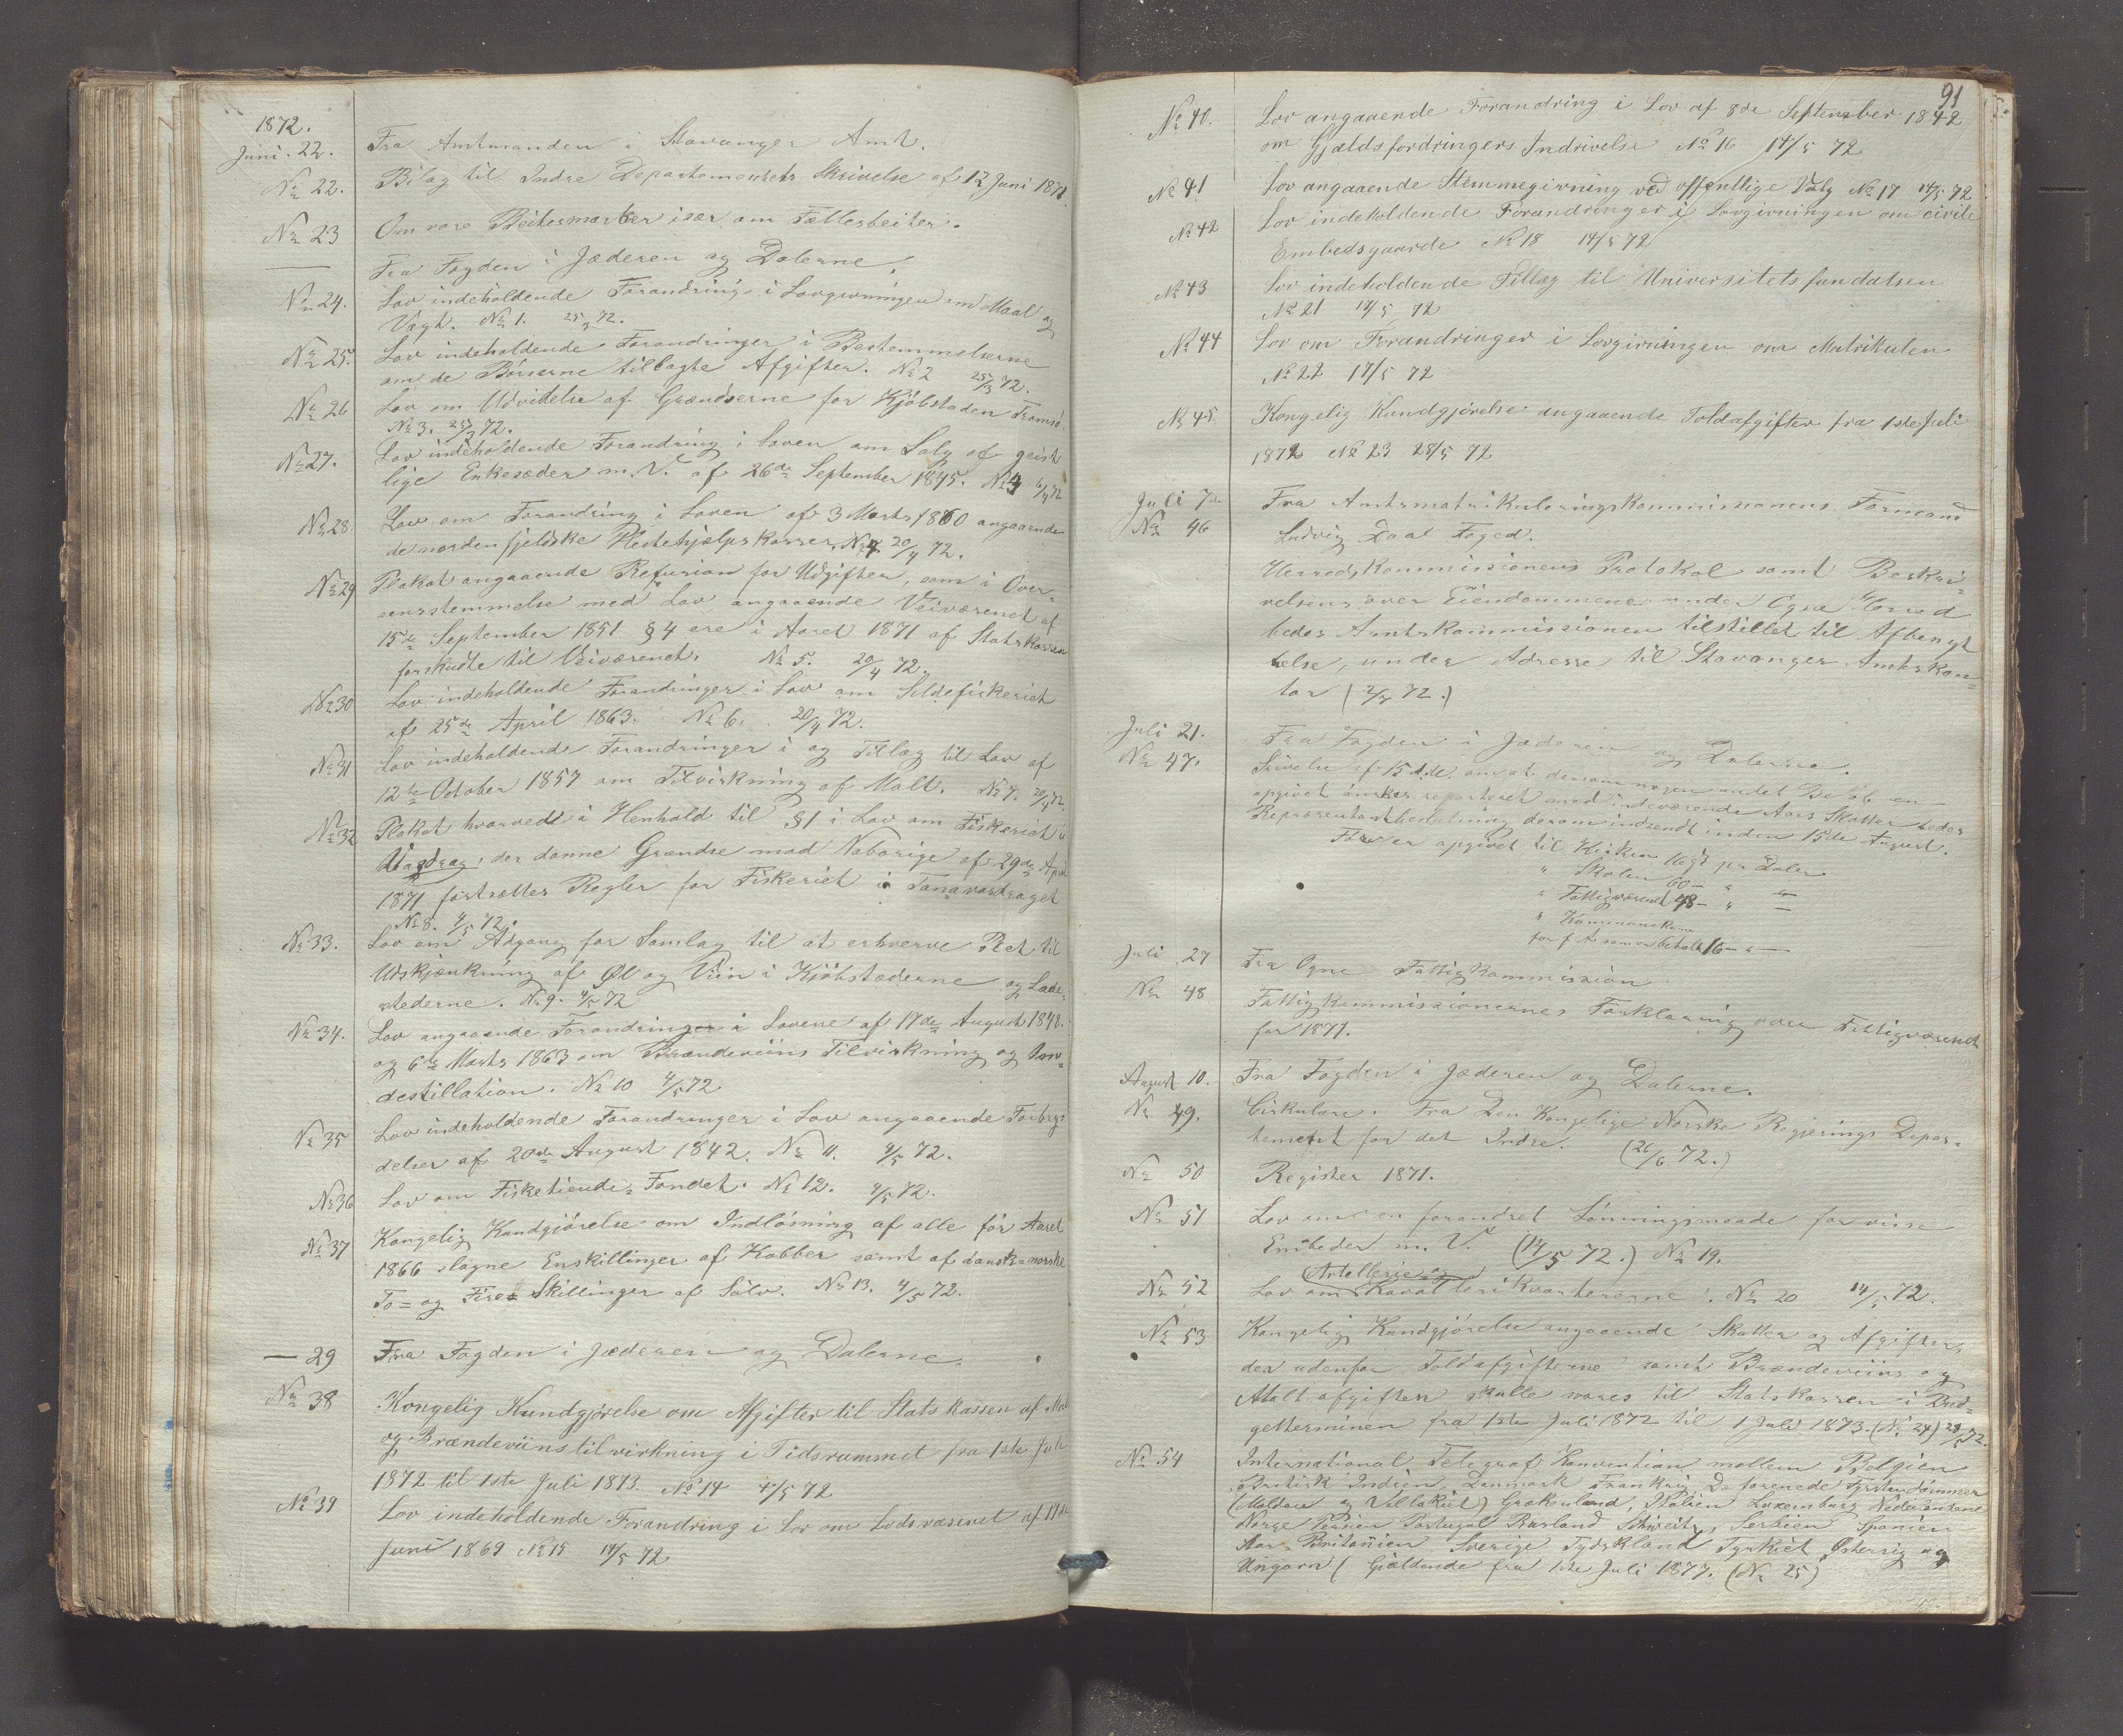 1872.
Juni. 22. Fra Amtmanden i Stavanger Amt.
No 22. Bilag til Indre Departementets Skrivelse af 12 Juni 1871.
No 23 Om vore Beitesmarker især om Fællesbeiter.
— Fra Fogden i Jæderen og Dalerne.
No 24. Lov indeholdende Forandring i Lovgivningen om Maal og
Vægt. No 1. 25/3 72.
No 25. Lov indeholdende Forandringer i Bestemmelserne
om de Börserne tillagte Afgifter. No 2 25/3 72.
No 26 Lov om Udvidelse af Grændserne for Kjöbstaden Tromsö.
No 3. 25/3 72.
No 27. Lov indeholdende Forandring i Loven om Salg af geist
lige Enkesæder m. V. af 26de September 1845. No 4 6/4 72
No 28. Lov om Forandring i Loven af 3 Marts 1860 angaaende
de nordenfjeldske Hjelpskasser, No 4 20/4 72.
No 29 Plakat angaaende Refusion for Udgifter, som i Over-
eensstemmelse med Lov angaaende Veivæsenet af
15de September 1851 § 4 ere i Aaret 1871 af Statskassen
forskudte til Veivæsenet. No 5. 20/4 72.
No 30 Lov indeholdende Forandringer i Lov om Sildefiskeriet
af 25de April 1863. No 6. 20/4 72.
No 31 Lov indeholdende Forandringer i og Tillæg til Lov af
12te October 1857 om Tilvirkning af Malt. No 7. 20/4 72.
No 32 Plakat hvorved i Henhold til § 1 i Lov om Fiskeriet i
Vasdrag, der danne Grændse mod Naborige af 29de April
1871 fastsættes Regler for Fiskeriet i Tanavasdraget
No 8. 4/5 72.
No 33. Lov om Adgang for Samlag til at erhverve Ret til
Udskjænkning af Øl og Viin i Kjöbstæderne og Lade-
stederne. No 9. 4/5 72
No 34. Lov angaaende Forandringer i Lovene af 17de August 1848.
og 6te Marts 1863 om Brændeviins Tilvirkning og Om-
destillation. No 10 4/5 72
No 35 Lov indeholdende Forandringer i Lov angaaende Forbry-
delser af 20de August 1842. No 11. 4/5 72.
No 36 Lov om Fisketiende-Fondet. No 12. 4/5 72.
No 37 Kongelig Kundgjörelse om Indlösning af alle för Aaret
1866 slagne Enskillinger af Kobber samt af dansk-norske
To- og Fire-Skillinger af Sölv. No 13. 4/5 72.
— 29 Fra Fogden i Jæderen og Dalerne.
No 38 Kongelig Kundgjørelse om Afgifter til Stats kassen af Malt
og Brændeviinstilvirkning i Tidsrummet fra 1ste Juli
1872 til 1ste Juli 1873. No 14 4/5 72
No 39 Lov indeholdende Forandring i Lov om Lodsvæsenet af 17de
Juni 1869 No 15 14/5 72
91
No 40. Lov angaaende Forandring i Lov af 8de September 1842
om Gjældsfordringers Indrivelse No 16 14/5 72
No 41 Lov angaaende Stemmegivning ved offentlige Valg No 17 14/5 72
No 42 Lov indeholdende Forandringer i Lovgivningen om civile
Embedsgaarde No 18 14/5 72
No 43 Lov indeholdende Tillæg til Universitetsfundatsen
No 21 14/5 72
No 44 Lov om Forandringer i Lovgivningen om Matrikulen
No 22 14/5 72
No 45 Kongelig Kundgjörelse angaaende Toldafgifter fra 1ste Juli
1872 No 23 28/5 72
Juli 7de Fra Amtsmatrikuleringskommissionens Formand
No 46 Ludvig Daae Foged.
Herredskommissionens Protokol samt Beskri-
velsen over Eiendommene under Ogne Herred
bedes Amtskommissionen tilstillet til Afbenyt
telse, under Adresse til Stavanger Amtskon-
tor (2/7 72.)
Juli 21. Fra Fogden i Jæderen og Dalerne.
No 47. Skrivelse af 15 d.d. om at dersom nogen andet Belöb en
opgivet önskes reparteret med indeværende Aars Skatter bedes
Repræsentantbeslutning derom indsendt inden 15de August.
Före er opgivet til Kirken 16 per Daler
" Skolen 60 — " —
" Fattigvæsenet 48 — " —
" Kommunekass
for f. A. som er beholdt 16 — " —
Juli 27 Fra Ogne Fattigkommission
No 48 Fattigkommissionernes Forklaring over Fattigvæsenet
for 1871.
August 10. Fra Fogden i Jæderen og Dalerne.
No 49. Cirkulære. Fra Den Kongelige Norske Regjerings Depar-
tement for det Indre. (26/6 72.)
No 50 Register 1871.
No 51 Lov om en forandret Lönningsmaade for visse
Embeder m. V. (14/5 72.) No 19.
Artelleri og
No 52 Lov om Kavalleri kvartererne. No 20 14/5 72.
No 53 Kongelig Kundgjörelse angaaende Skatter og Afgifter,
der udenfor Toldafgifterne samt Brændeviins og
Malt afgiften skulle svares til Stats kassen i Bud-
getterminen fra 1ste Juli 1872 til 1 Juli 1873. (No 24) 28/5 72.
No 54 International Telegraf Konvention mellem Belgien
Britisk Indien, Danmark Frankrig, De forenede Fyrstendömmer
(Moldau og Vallakiet) Grækenland, Italien Luxemburg Nederlandene
Norge Persien Portugal Rusland Schweitz, Serbien Spanien
Stor-Britanien Sverige Tydskland Tyrkiet Østerrig og
Ungarn (Gjældende fra 1ste Juli 1877. (No 25)